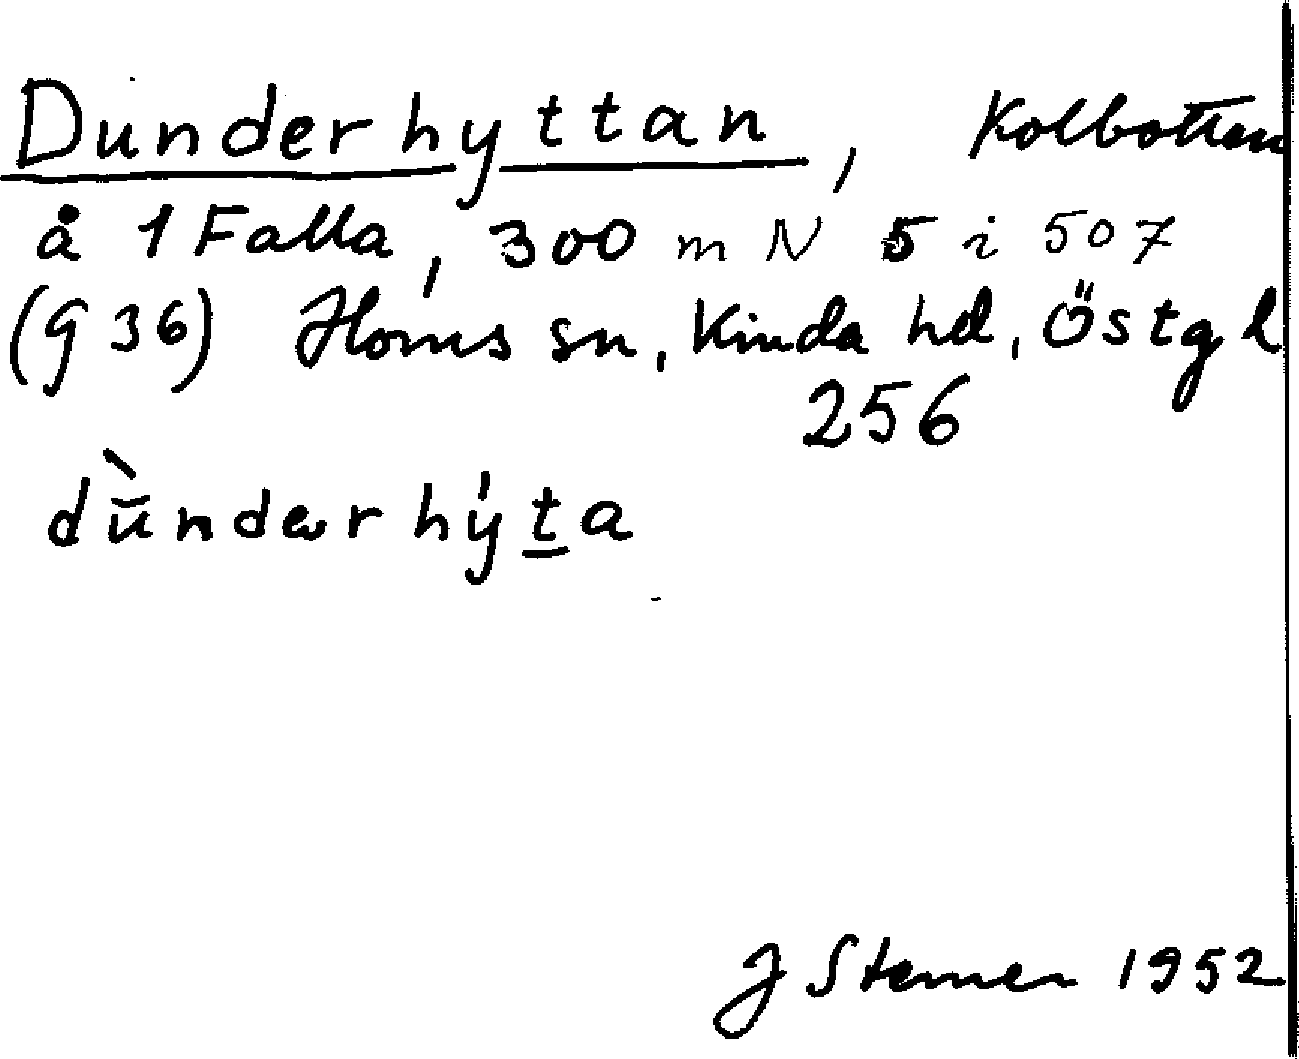 Dunderhyttan, Kolbotten
å 1 Falla, 300 m N 5 i 507
(g 36) Horns sn, Kinda hd, Östgl
256
dùndærhýta
J Sterner 1952